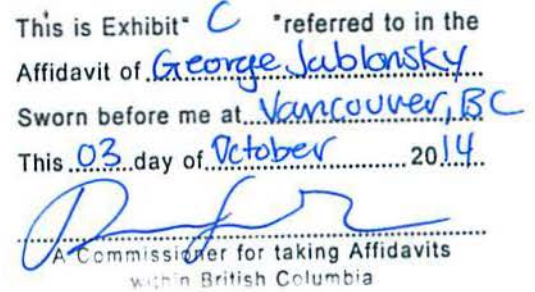 This is Exhibit" C "referred to in the
Affidavit of George Jablonsky
Sworn before me at Vancouver, BC
This 03 day of October 2014
A Commissioner for taking Affidavits
within British Columbia